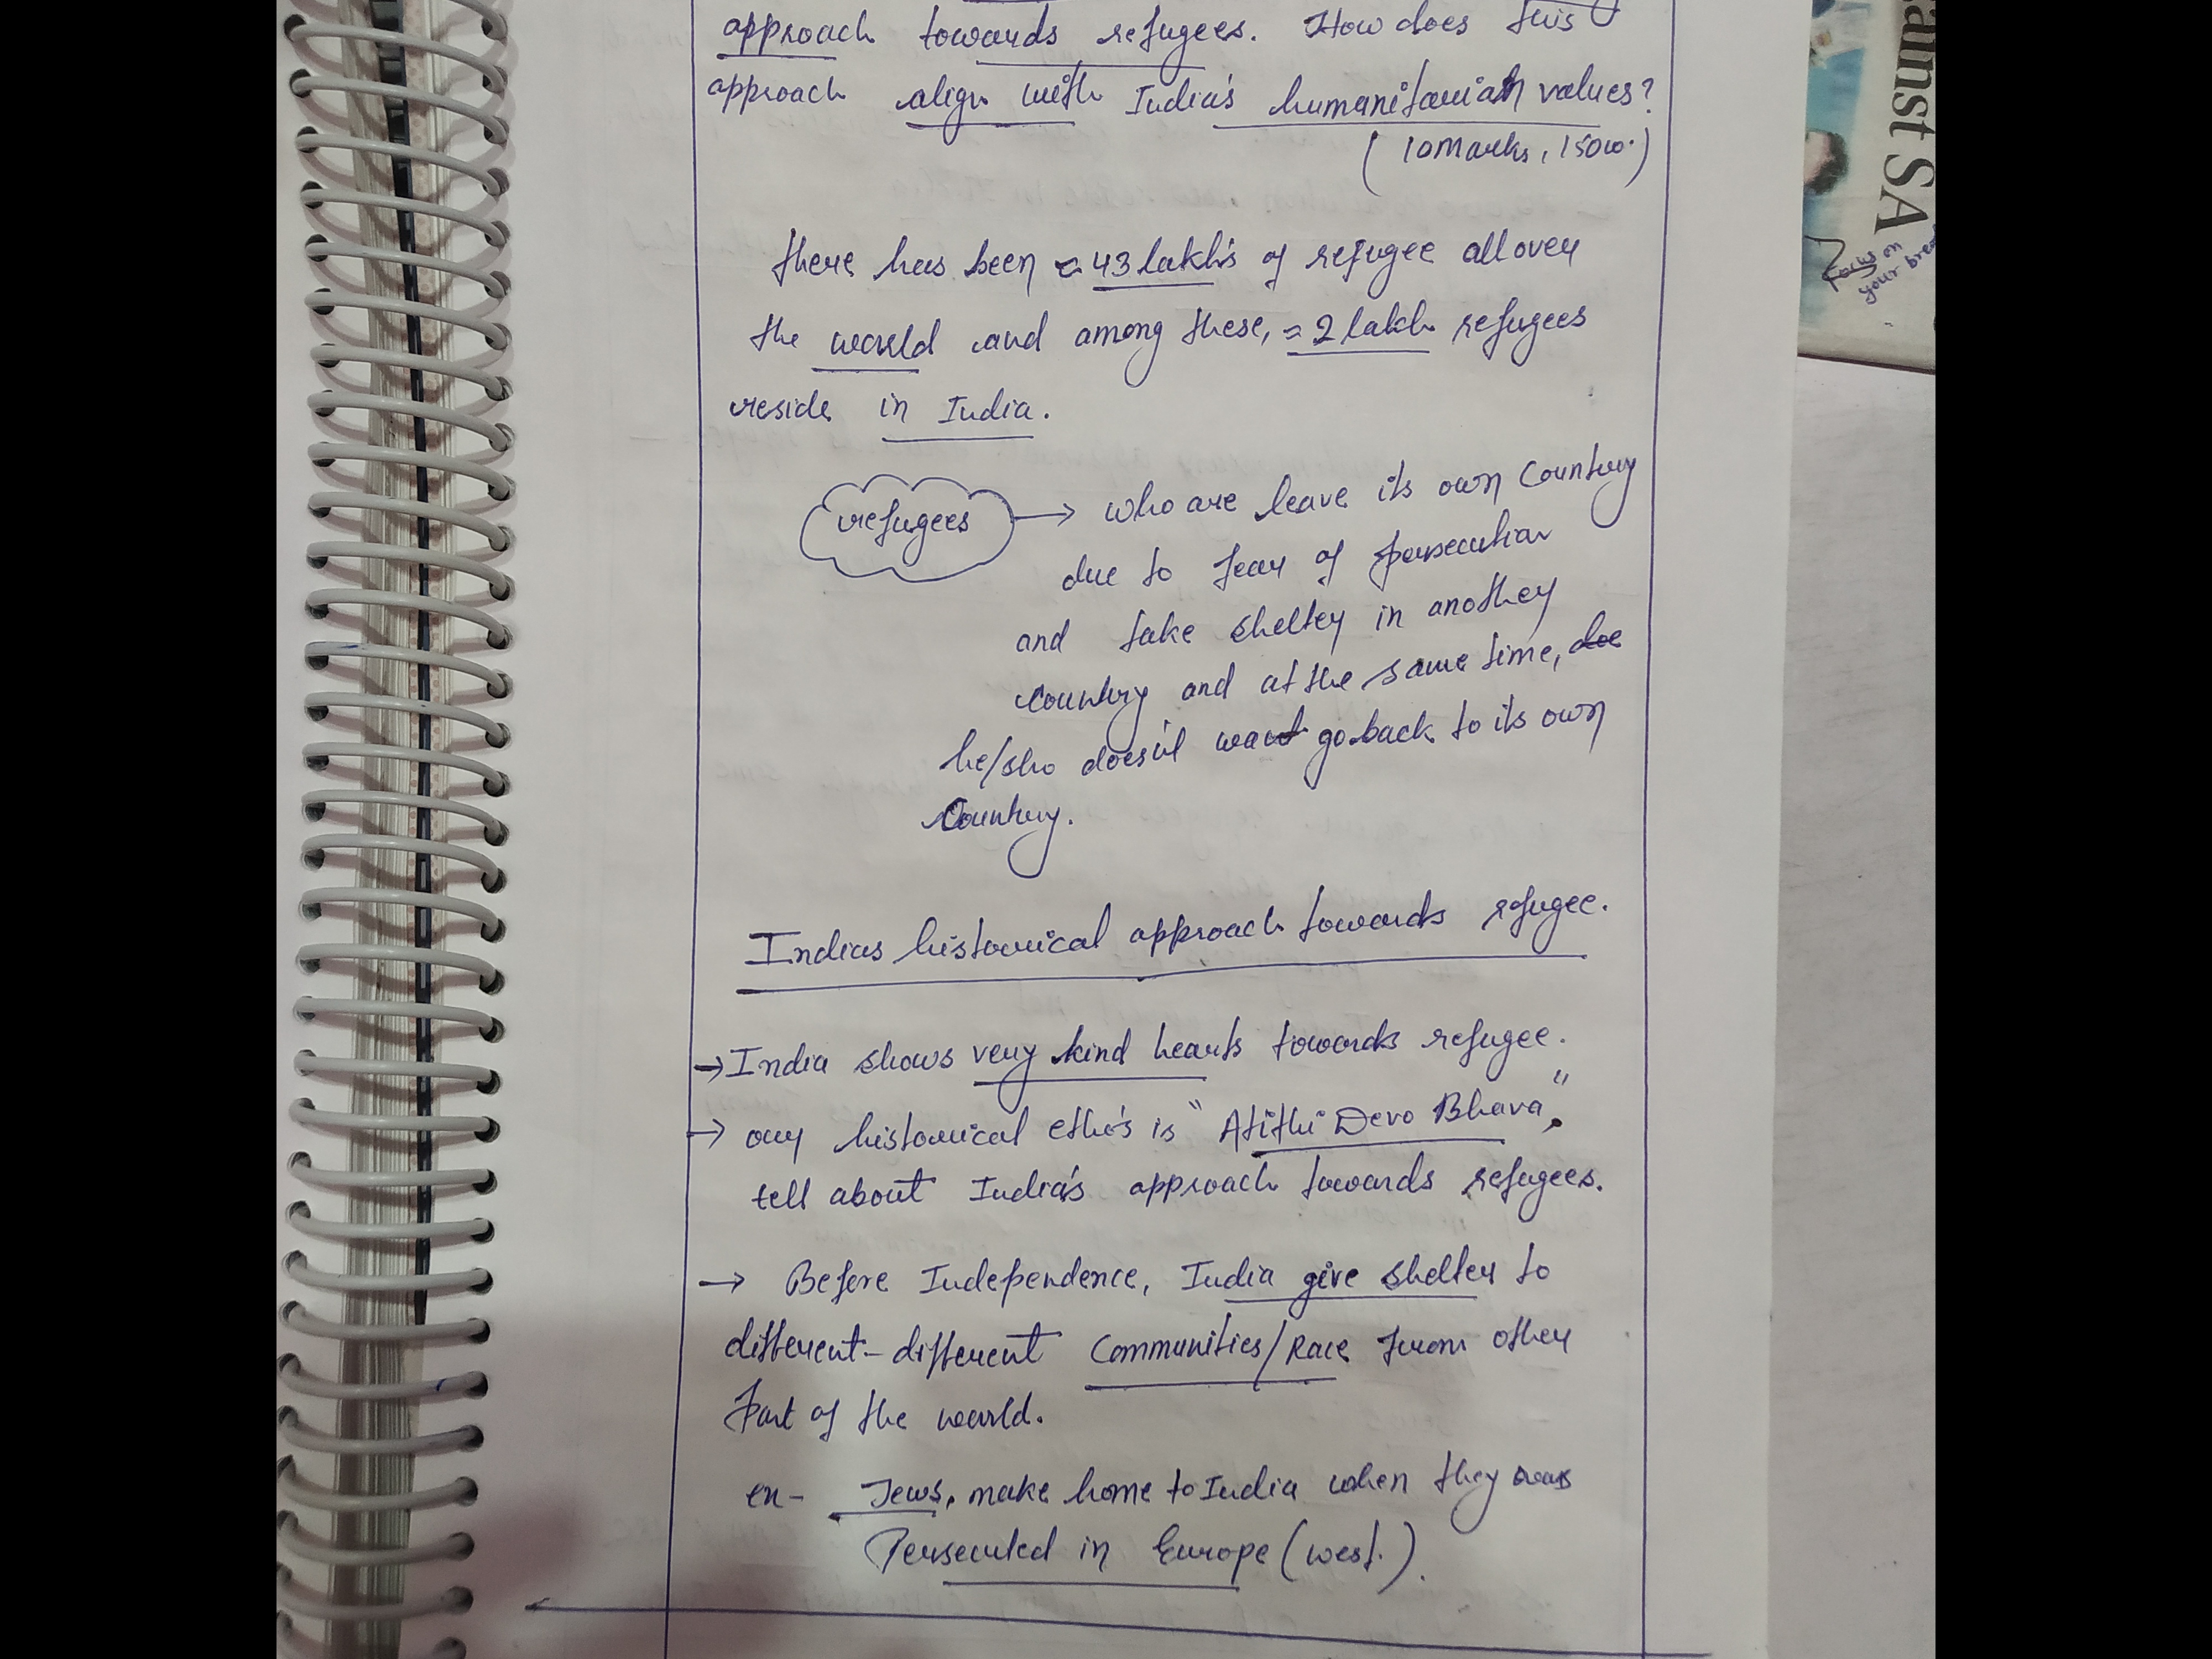 approach towards refugees. How does this
approach align with India's humanitarian values?
(10 Marks, 150w.)
ainst SA
Focus on
your brea
there has been ≈ 43 lakh's of refugee all over
the world and among these, ≈ 2 lakh refugees
reside in India.
refugees → who are leave its own Country
due to fear of persecution
and take shelter in another
country and at the same time, doe
he/she doesn't want go back to its own
Country.
Indias historical approach towards refugee.
→ India shows very kind hearts towards refugee.
→ our historical etho's is "Atithi Devo Bhava",
tell about India's approach towards refugees.
→ Before Independence, India give shelter to
different-different Communities/Race from other
Part of the world.
ex- Jews, make home to India when they was
Persecuted in Europe (west.).